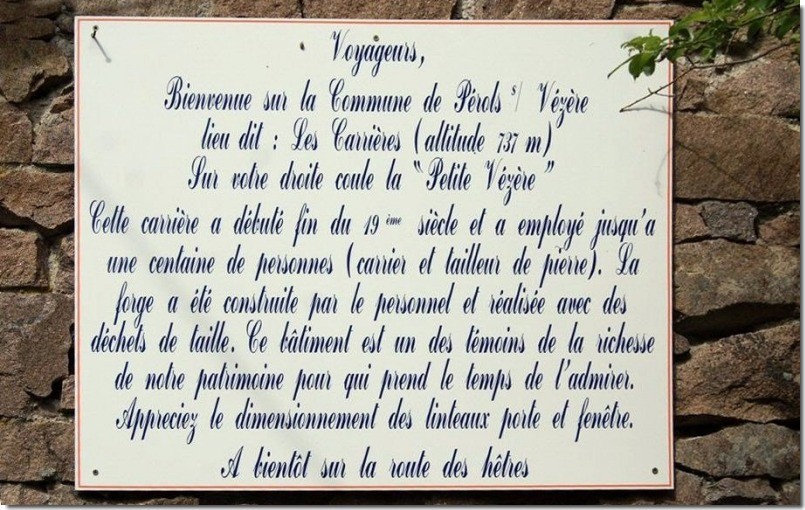 Voyageurs,
Bienvenue sur la Commune de Pérols s/ Vézère
lieu dit : Les Carrières (altitude 737 m)
Sur votre droite coule la "Petite Vézère"
Cette carrière a débuté fin du 19 ème siècle et a employé jusqu'a
une centaine de personnes (carrier et tailleur de pierre). La
forge a été construite par le personnel et réalisée avec des
déchets de taille. Ce bâtiment est un des témoins de la richesse
de notre patrimoine pour qui prend le temps de l'admirer.
Appreciez le dimensionnement des linteaux porte et fenêtre.
A bientôt sur la route des hêtres